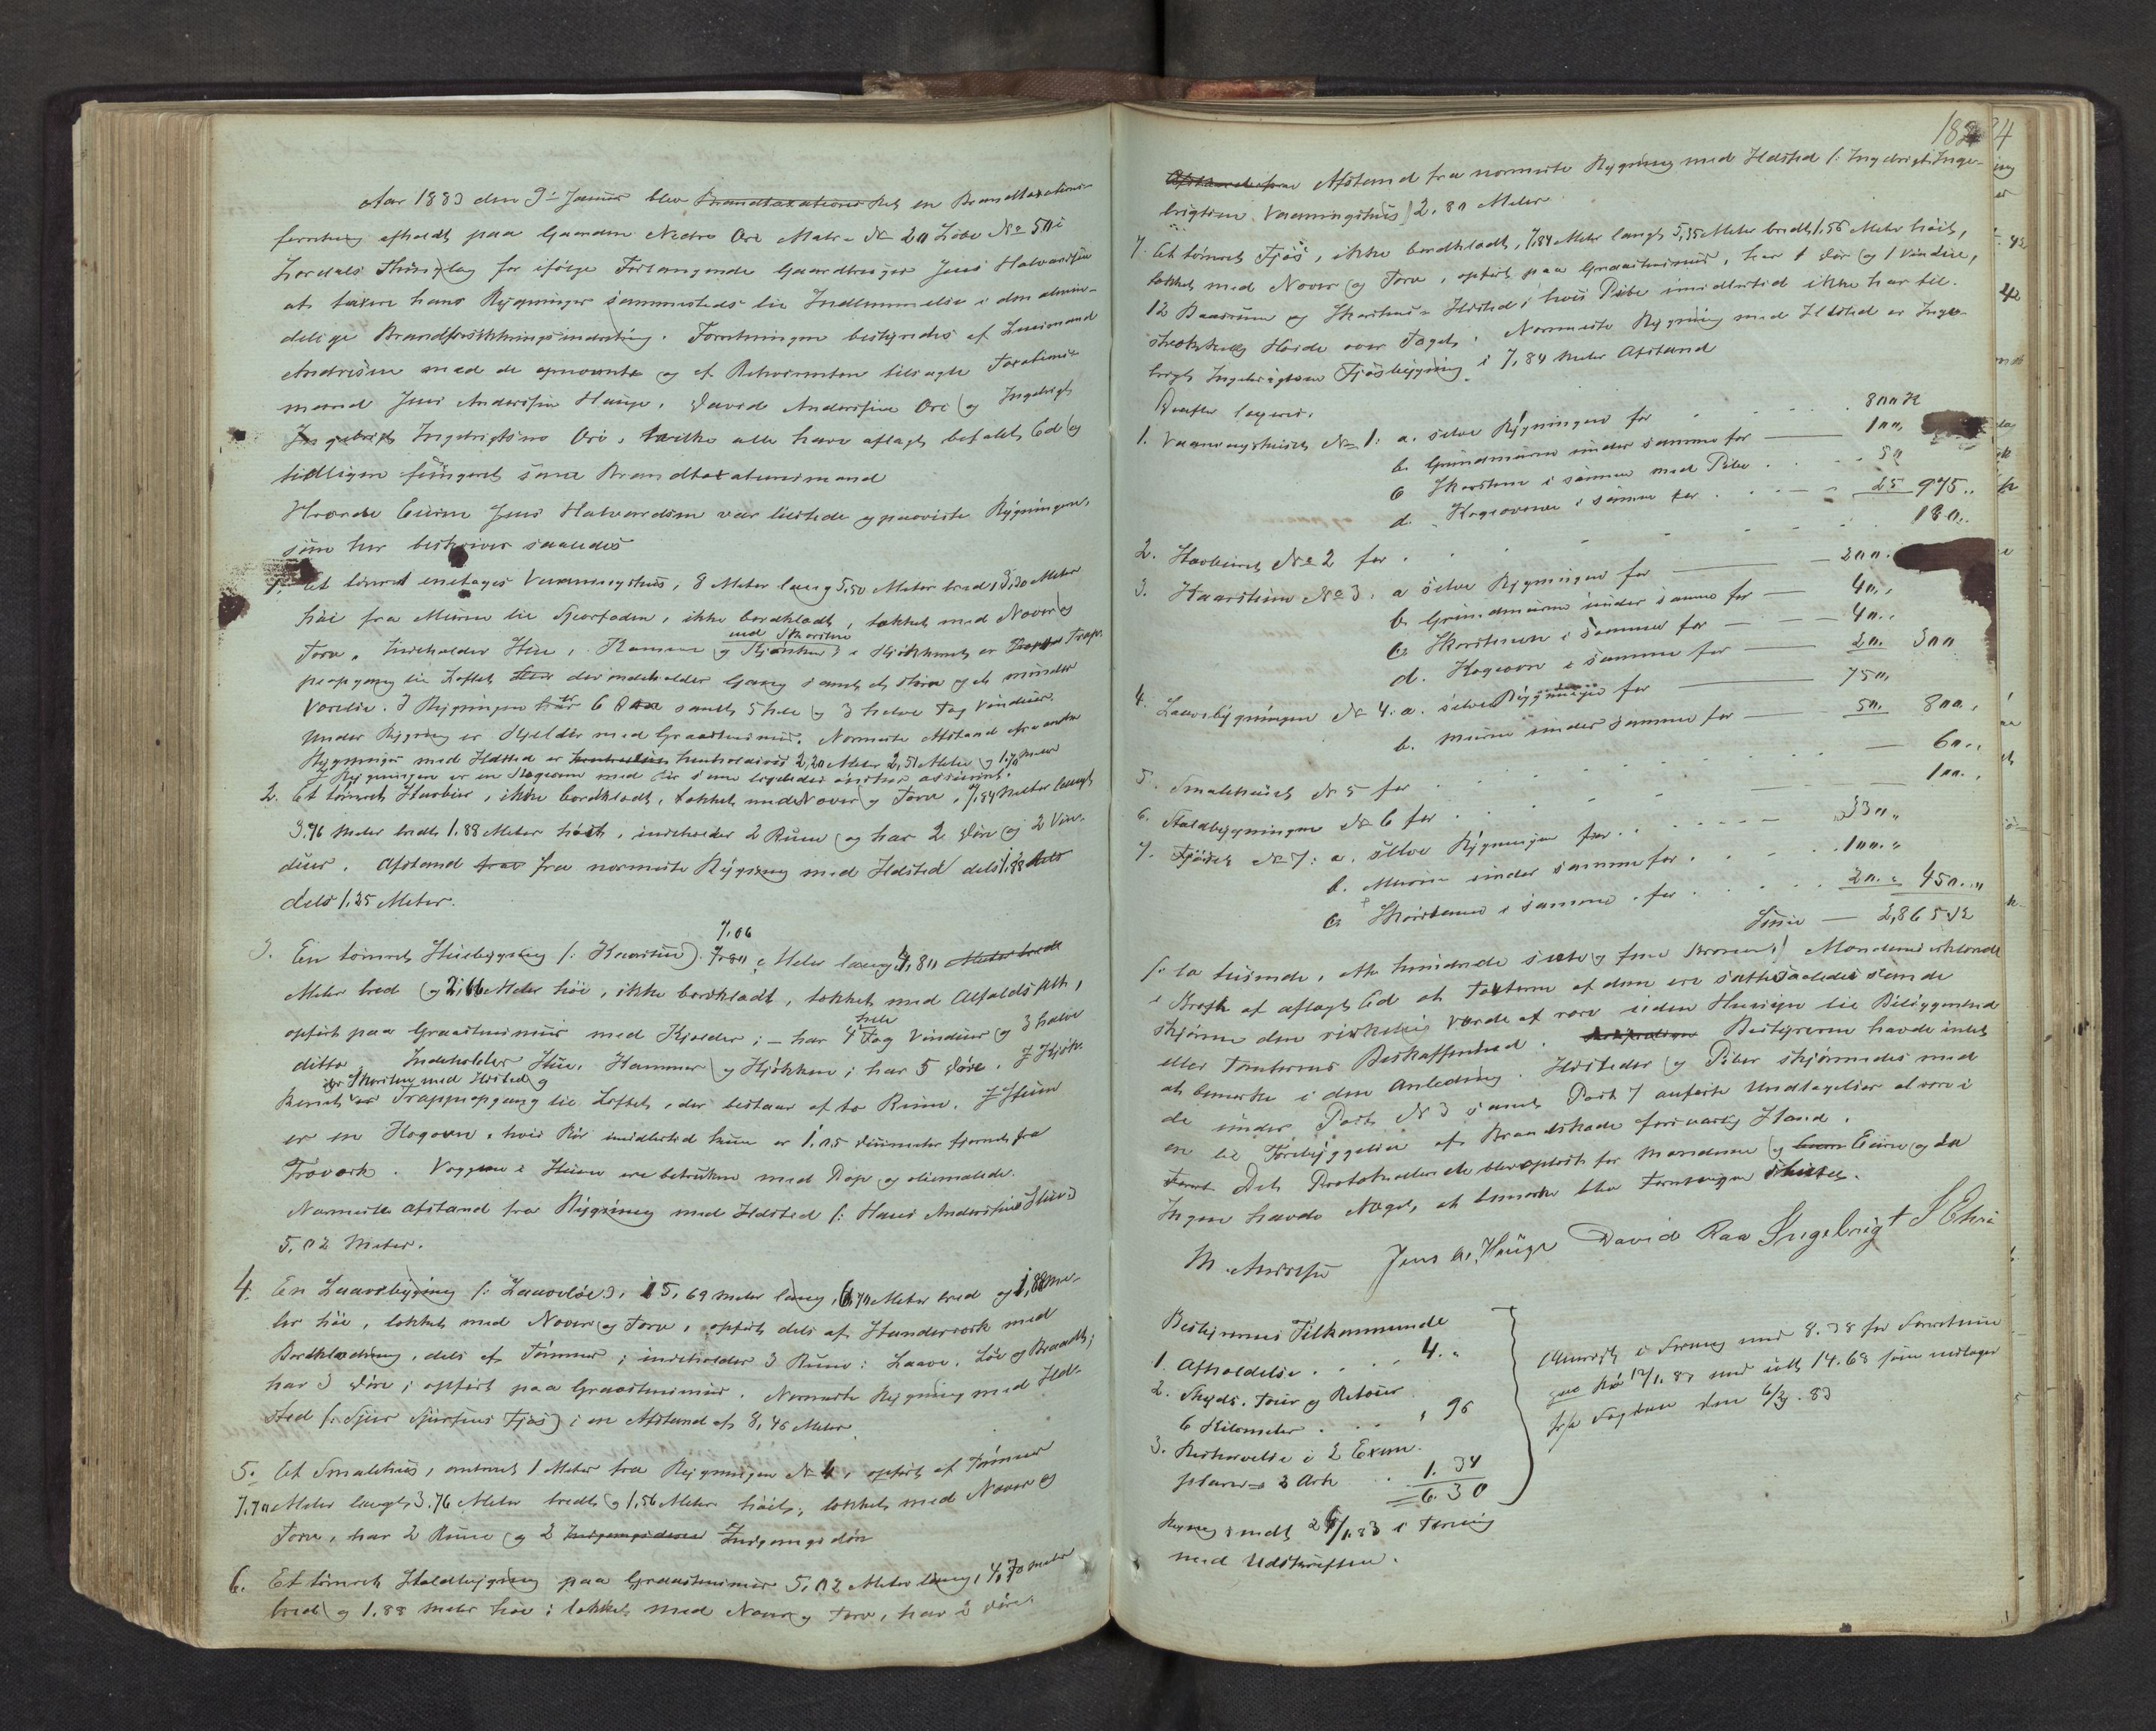 Aar 1883 den 9de Januar blev Brandtaxations Ret en Brandtaxations-
forretning afholdt paa Gaarden Nedre Ore Matr. No 20 Løbe No 50 i
Thinglag for ifølge Forlangende Gaardbruger Jens Halvardsen
at taxere hans Bygninger sammesteds til Indlemmelse i den almin-
delige Brandforsikkringsindretning. Forretningen bestyredes af Lensmand
Andersen med de opnævnte og af Rekvirenten tilsagte Taxations-
mænd Jens Andersen Hauge, David Andersen Ore og Ingebrigt
Ingebrigt Ingebrigtsen Ore, hvilke alle have aflagt befalet Ed og
tidligere fungeret som Brandtaxationsmænd
Eieren Jens Halvardsen var tilstede og paaviste Bygningerne,
som her beskrives saaledes
1. Et tømret enetages Vaaningshus, 8 Meter lang 5,50 Meter bred, 3,30 Meter
høi fra Muren til Sperfoden, ikke bordklædt, takket med Never og
med Skorsten
Torv, indeholder Stue, Kammer og Kjøkken; i Kjøkkenet er Trap-
peopgang til Loftet der indeholder Gang samt et større og et mindre
Værelse. I Bygningen er 6 Døre samt 5 hele og 3 halve Fag Vinduer.
Under Bygning er Kjelder med Graastensmur. Nærmeste Afstand fra andre
Bygninger med Ildsted er henholdsvis 2,20 Meter 2,51 Meter og 1,70 Meter
I Bygningen er en Kogeovn med Rør som ligeledes ønskes assureret.
2. Et tømret Stabbur, ikke bordklædt, takket med Never og Torv, 7,84 Meter langt
3.76 Meter bredt 1.88 Meter høit, indeholder 2 Rum og har 2 Døre og 2 Vin-
duer. Afstand fra fra nærmeste Bygning med Ildsted dels 1,88 dels
dels 1.25 Meter.
7.06
3. En tømret Husbygning /: Kaarstue :/ 7.80 Meter lang 4,80 Meter bredt
Meter bred og 2,66 Meter høi, ikke bordklædt, takket med
hele
opført paa Graastensmur med Kjelder; – har 4 Fag Vinduer og 3 halve
ditto Indeholder Stue, Kammer og Kjøkken; har 5 Døre. I Kjøk-
er Skorsten med Ildsted og
kenet er Trappeopgang til Loftet, der bestaar af to Rum. I Stuen
er en Kogeovn, hvis Rør imidlertid kun er 1.05 Decimeter fjernet fra
Træværk. Væggene i Stuen ere betrukne med Pap og oliemalede.
Nærmeste Afstand fra Bygning med Ildsted /: Hans Andersens Stue :/
5.02 Meter.
4. En Laavebygning /: Laaveløe :/, 15,69 Meter lang, 6,70 Meter bred og 1,88 Me-
ter høi, takket med Never og Torv, opført dels af Stænderværk med
Bordklædning, dels af Tømmer; indeholder 3 Rum: Laave, Løe og ;
har 3 Døre; opført paa Graastensmur. Nærmeste Bygning med Ild-
sted /: Sjur Sjursens Fjøs :/ i en Afstand af 8,46 Meter.
5. Et Smalehus, omtrent 1 Meter fra Bygningen No 4, opført af Tømmer
7.70 Meter langt 3.76 Meter bredt og 1,56 Meter høit; takket med Never og
Torv, har 2 Rum og 2 Indgangsdøre Indgangsdør
6. Et tømret Staldbygning paa Graastensmur 5,02 Meter lang, 4,70 Meter
bred og 1.88 Meter høi; takket med Never og Torv, har 2 Døre.
Afstand fra nærmeste Bygning med Ildsted /: Ingebrigt Inge-
brigtsens Vaaningshus :/ 2.80 Meter
7. Et tømret Fjøs, ikke bordklædt, 7,84 Meter langt 5,35 Meter bredt 1,56 Meter høit,
takket med Never og Torv, opført paa Graastensmur, har 1 Dør og 1 Vindue,
12 Baasrum og Skorstens Ildsted; hvis Pibe imidlertid ikke har til-
strækkelig Høide over Taget. Nærmeste Bygning med Ildsted er Inge-
brigt Ingebrigtsens Fjøsbygning i 7,84 Meter Afstand
Derefter taxeres.
1. Vaaningshuset No 1: a. selve Bygningen for 800 Kr
b. Grundmuren under samme for 100,
c Skorstenen i samme med Pibe 50
d. Kogeovnen i samme for 25 975 ..
2. Stabburet No 2 for 180 ..
3. Kaarstuen No 3: a selve Bygningen for 200 .
b. Grundmuren under samme for 40 ..
c. Skorstenen i samme for 40 ..
d. Kogeovn i samme for 20. 300
4. Laavebygningen No 4: a. selve Bygningen for 750,
b. Muren under samme for 50. 800,
5. Smalehuset No 5 for 60 ..
6. Staldbygningen No 6 for 100 .,
7. Fjøset No 7: a. selve Bygningen for 330 „
b. Muren under samme for 100 „
c. Skorstenen i samme for 20 .. 450 ..
Summa — 2,865 Kr
/: to tusinde, otte hundrede sexti og fem Kroner :/ Mændene erklærede
i Kraft af aflagt Ed at Taxterne af dem ere satte saaledes som de
skjønne den virkelige Værdi at være uden Hensyn til Beliggenhed
eller Tomternes Beskaffenhed. Bestyreren havde intet
at bemærke i den Anledning. Ildsteder og Piber skjønnedes med
de under Post No 3 samt Post 7 anførte Undtagelser at være i
en til Forebyggelse af Brandskade forsvarlig Stand.
Det Protokollerede blev oplæst for Mændene og Eieren og da
Ingen havde Noget at bemærke blev Forretningen sluttet.
M. Andersen Jens A. Hauge David Raa Ingebrigt I Ehri
Bestyrerens Tilkommende
1. Afholdelse . . . 4. „
2. Skyds. Tour og Retour
6 Kilometer . . . „ 96
3. Beskrivelse i 2 Exem-
plarer 2 Ark . . 1. 34
6. 30
med 8.38 for
12/1.83 med 14.68 som modtaget
fra Fogden den 6/3. 83
26/1.83 i Terning
med Udskriften.